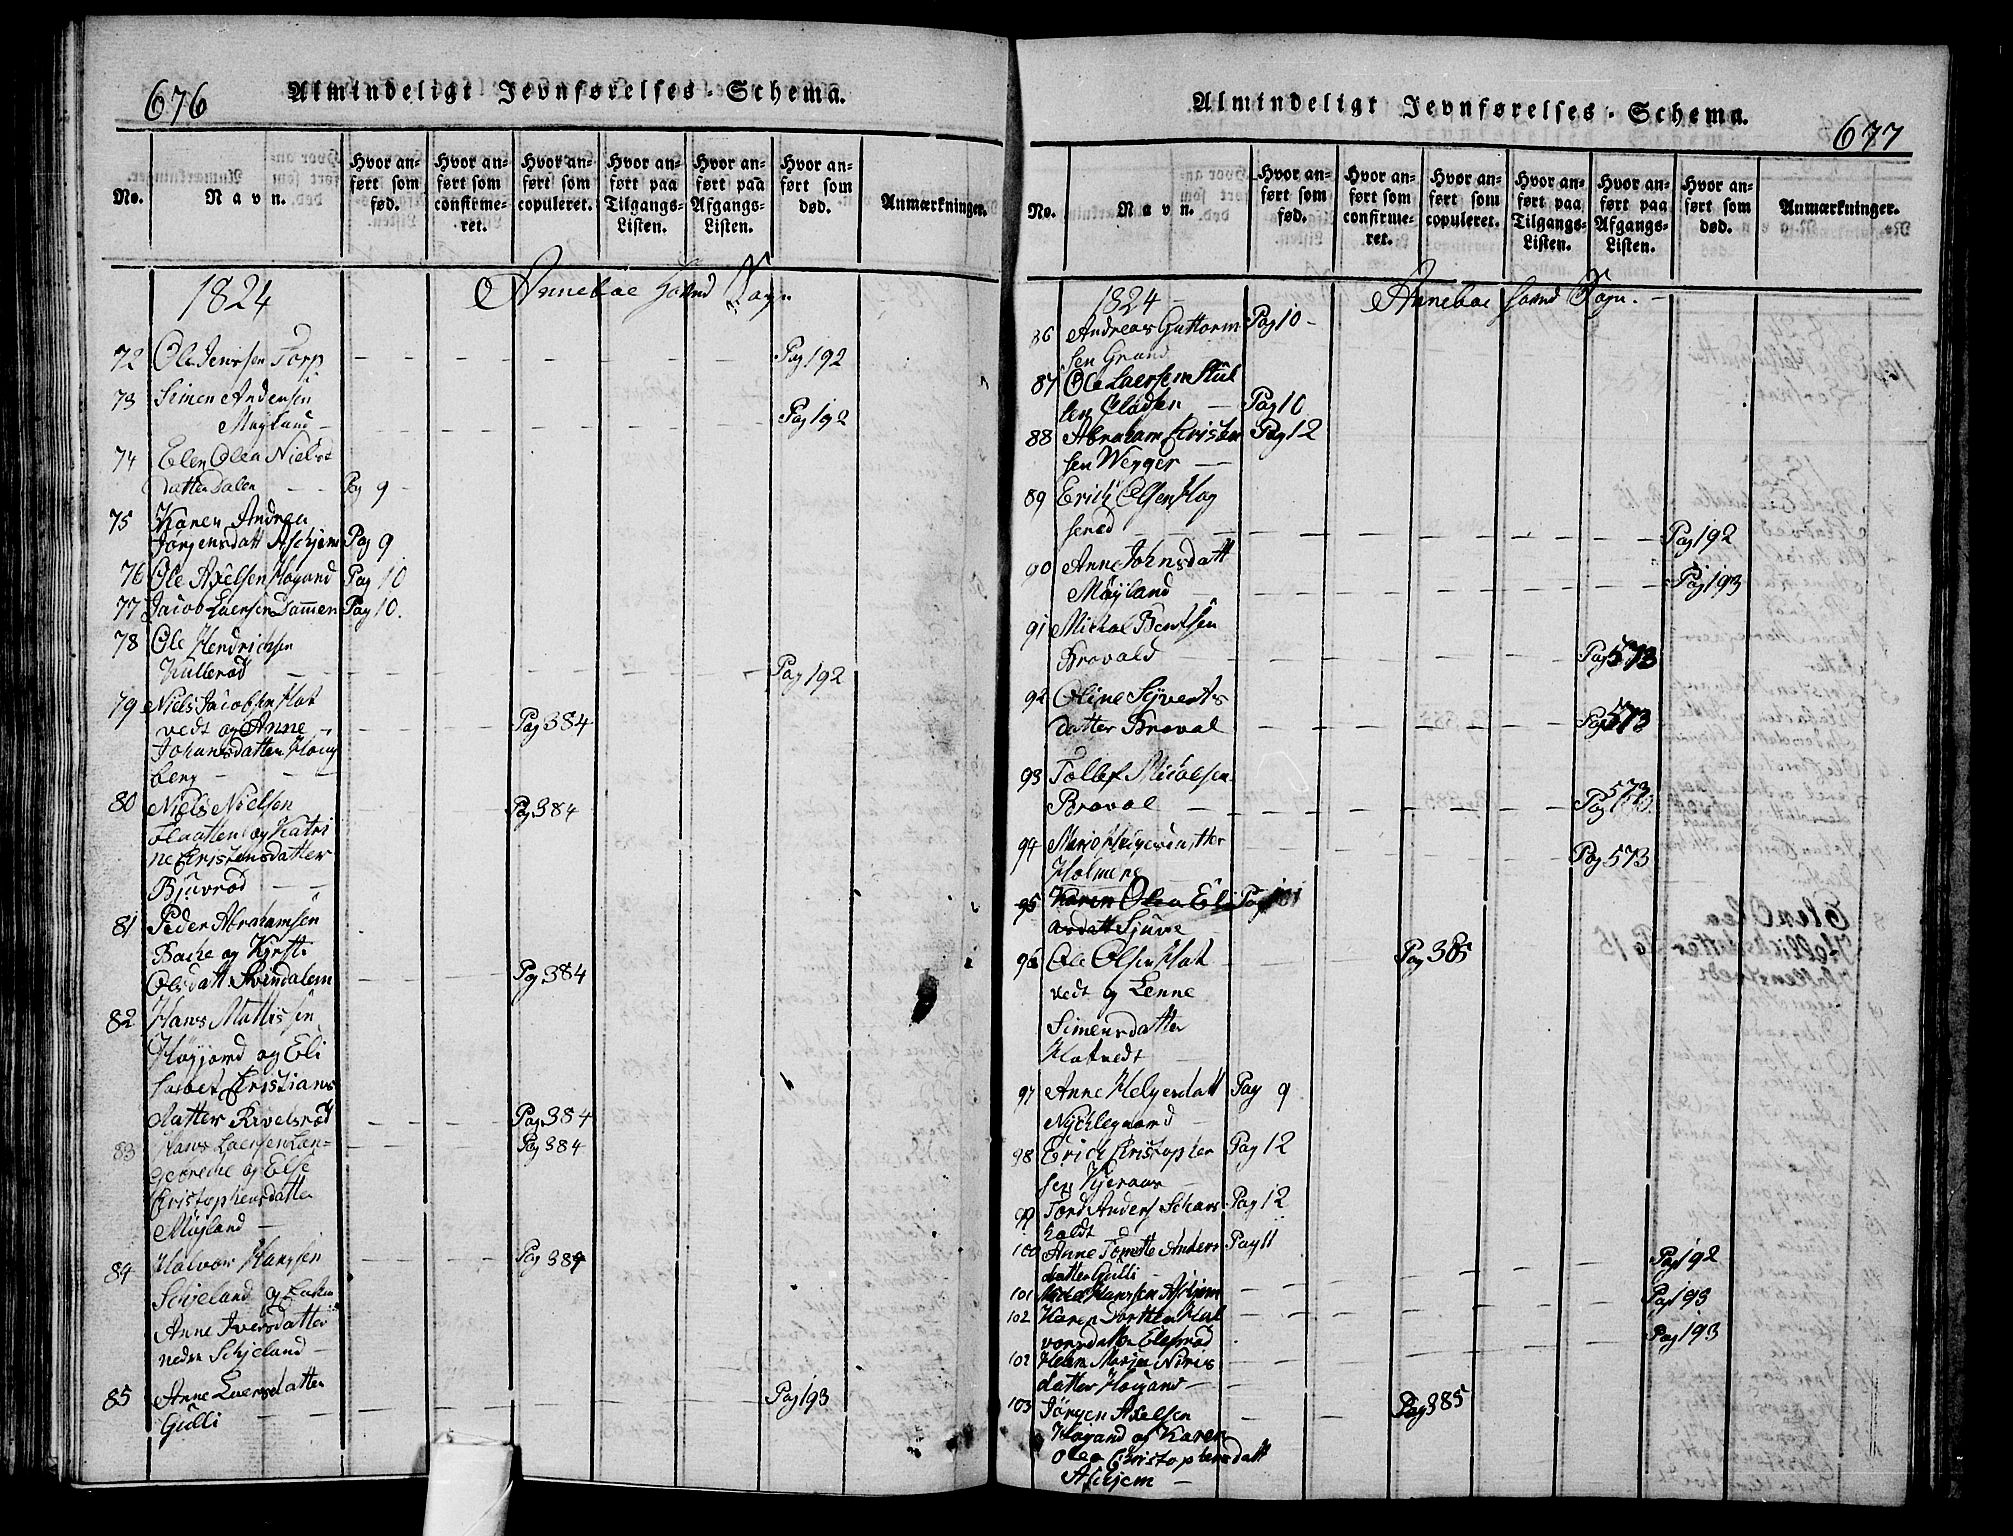 676
Almindeligt Jevnførelses-Schema.
No.
Navn.
Hvor anført som fød.
Hvor anført som confirmeret.
Hvor anført som copuleret.
Hvor anført paa Tilgangs-Listen.
Hvor anført paa Afgangs-Listen.
Hvor anført som død.
Anmærkninger.
1824 Anneboe Hovnd Sogn
72 Ole Jenssen Torp Pag 192
73 Simen Andersen
Møyland Pag 192
74 Elen Olea Niels
datter Dalen Pag 9
75 Karen Andrea
Jørgensdatt Askjem Pag 9
76 Ole Axelsen Høgand Pag 10
77 Jacob Laersen Dammen Pag 10.
78 Ole Hendrichsen
Kullerød Pag 192
79 Niels Jacobsen Hat
vedt og Anne Pag 384
Johansdatter Houg
berg
80 Niels Nielsen Pag 384
Flaatten og Katri
ne Kristensdatter
Bjuvrød
81 Peder Abrahamsen
Bache og Kirsti
Olsdatt Svendalem Pag 384
82 Hans Mathissen
Høyjord og Eli
sabet Kristians
datter Rivelsrød Pag 384
83 Hans Laersen Lan= Pag 384
georeche og Else
Cristophersdatter
Møyland
84 Halvor Hanssen Pag 384
Schjeland og
Anne Iversdatter
nedre Schjeland
85 Anne Laersdatter Pag 193
Gulli
Almindeligt Jevnførelses-Schema.
677
No.
Navn.
Hvor anført som fød.
Hvor anført som confirmeret.
Hvor anført som copuleret.
Hvor anført paa Tilgangs-Listen.
Hvor anført paa Afgangs-Listen.
Hvor anført som død.
Anmærkninger.
1824 Anneboe Hovnd Sogn.
86 Andreas Guttorm Pag 10
sen Grand
87 Ole Laersen Stul
len Pag 10
88 Abraham Kristen Pag 12
sen Wegger
89 Erich Olsen Hag
sered Pag 192
90 Anne Johnsdatt
Møyland Pag 193
91 Michal Bentsen
Brovald Pag 573
92 Oline Syverts
datter Broval Pag 573
93 Tollef Micalsen
Broval Pag 573
94 Marie
Holmene Pag 573
95 Karen Olea Eli Pag 101
arsdatt Sjuve
96 Ole Olsen Hat Pag 385
vedt og Lenne
Simensdatter
Hatvedt
97 Anne Helgersdatt Pag 9
Nychlegaard
98 Erich Kristopher Pag 12
sen Kjeraas
99 Tord Anders Schans Pag 12
holdt
100 Anne Tomette Anders Pag 11
datter Gulli Pag 192
101 Hanssen Askjem Pag 193
102 Karen Dorthea Hal
vorsdatter Ellefsrød Pag 193
102 Helen Marja Nires
datter Høigand
103 Jørgen Axelsen Pag 385
Høgand og Karen
Olea Christophersdatt
Askjem